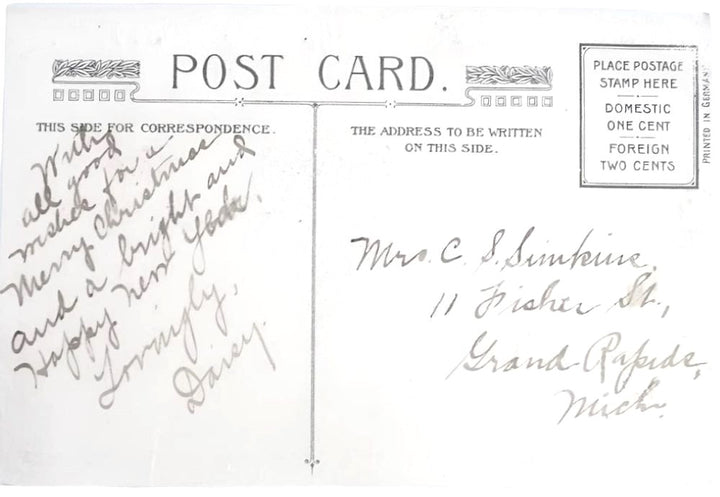 POST CARD.
THIS SIDE FOR CORRESPONDENCE.
THE ADDRESS TO BE WRITTEN
ON THIS SIDE.
PLACE POSTAGE
STAMP HERE
DOMESTIC
ONE CENT
FOREIGN
TWO CENTS
PRINTED IN GERMANY
With
all good
wishes for a
Merry Christmas
and a bright and
Happy New Year.
Lovingly,
Daisy.
Mrs. C. S. Simkins,
11 Fisher St.,
Grand Rapids,
Mich.